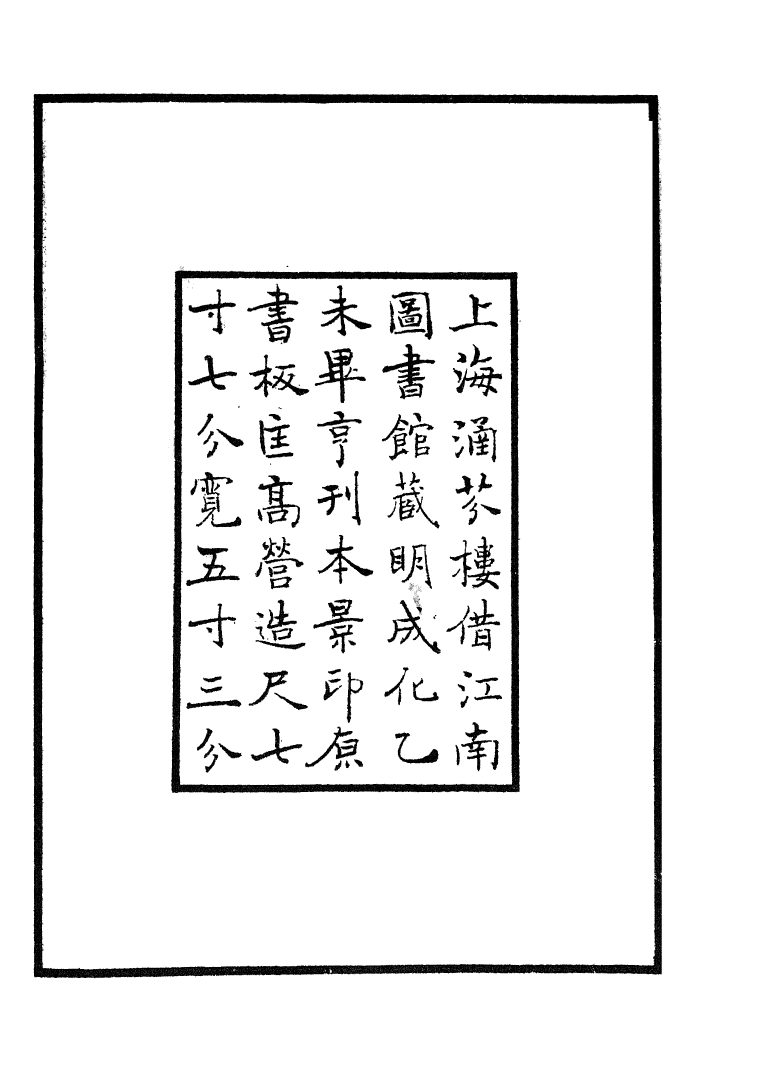 上海涵芬樓借江南
圖書館藏明成化乙
未畢亨刊本景印原
書板匡高營造尺七
寸七分寬五寸三分